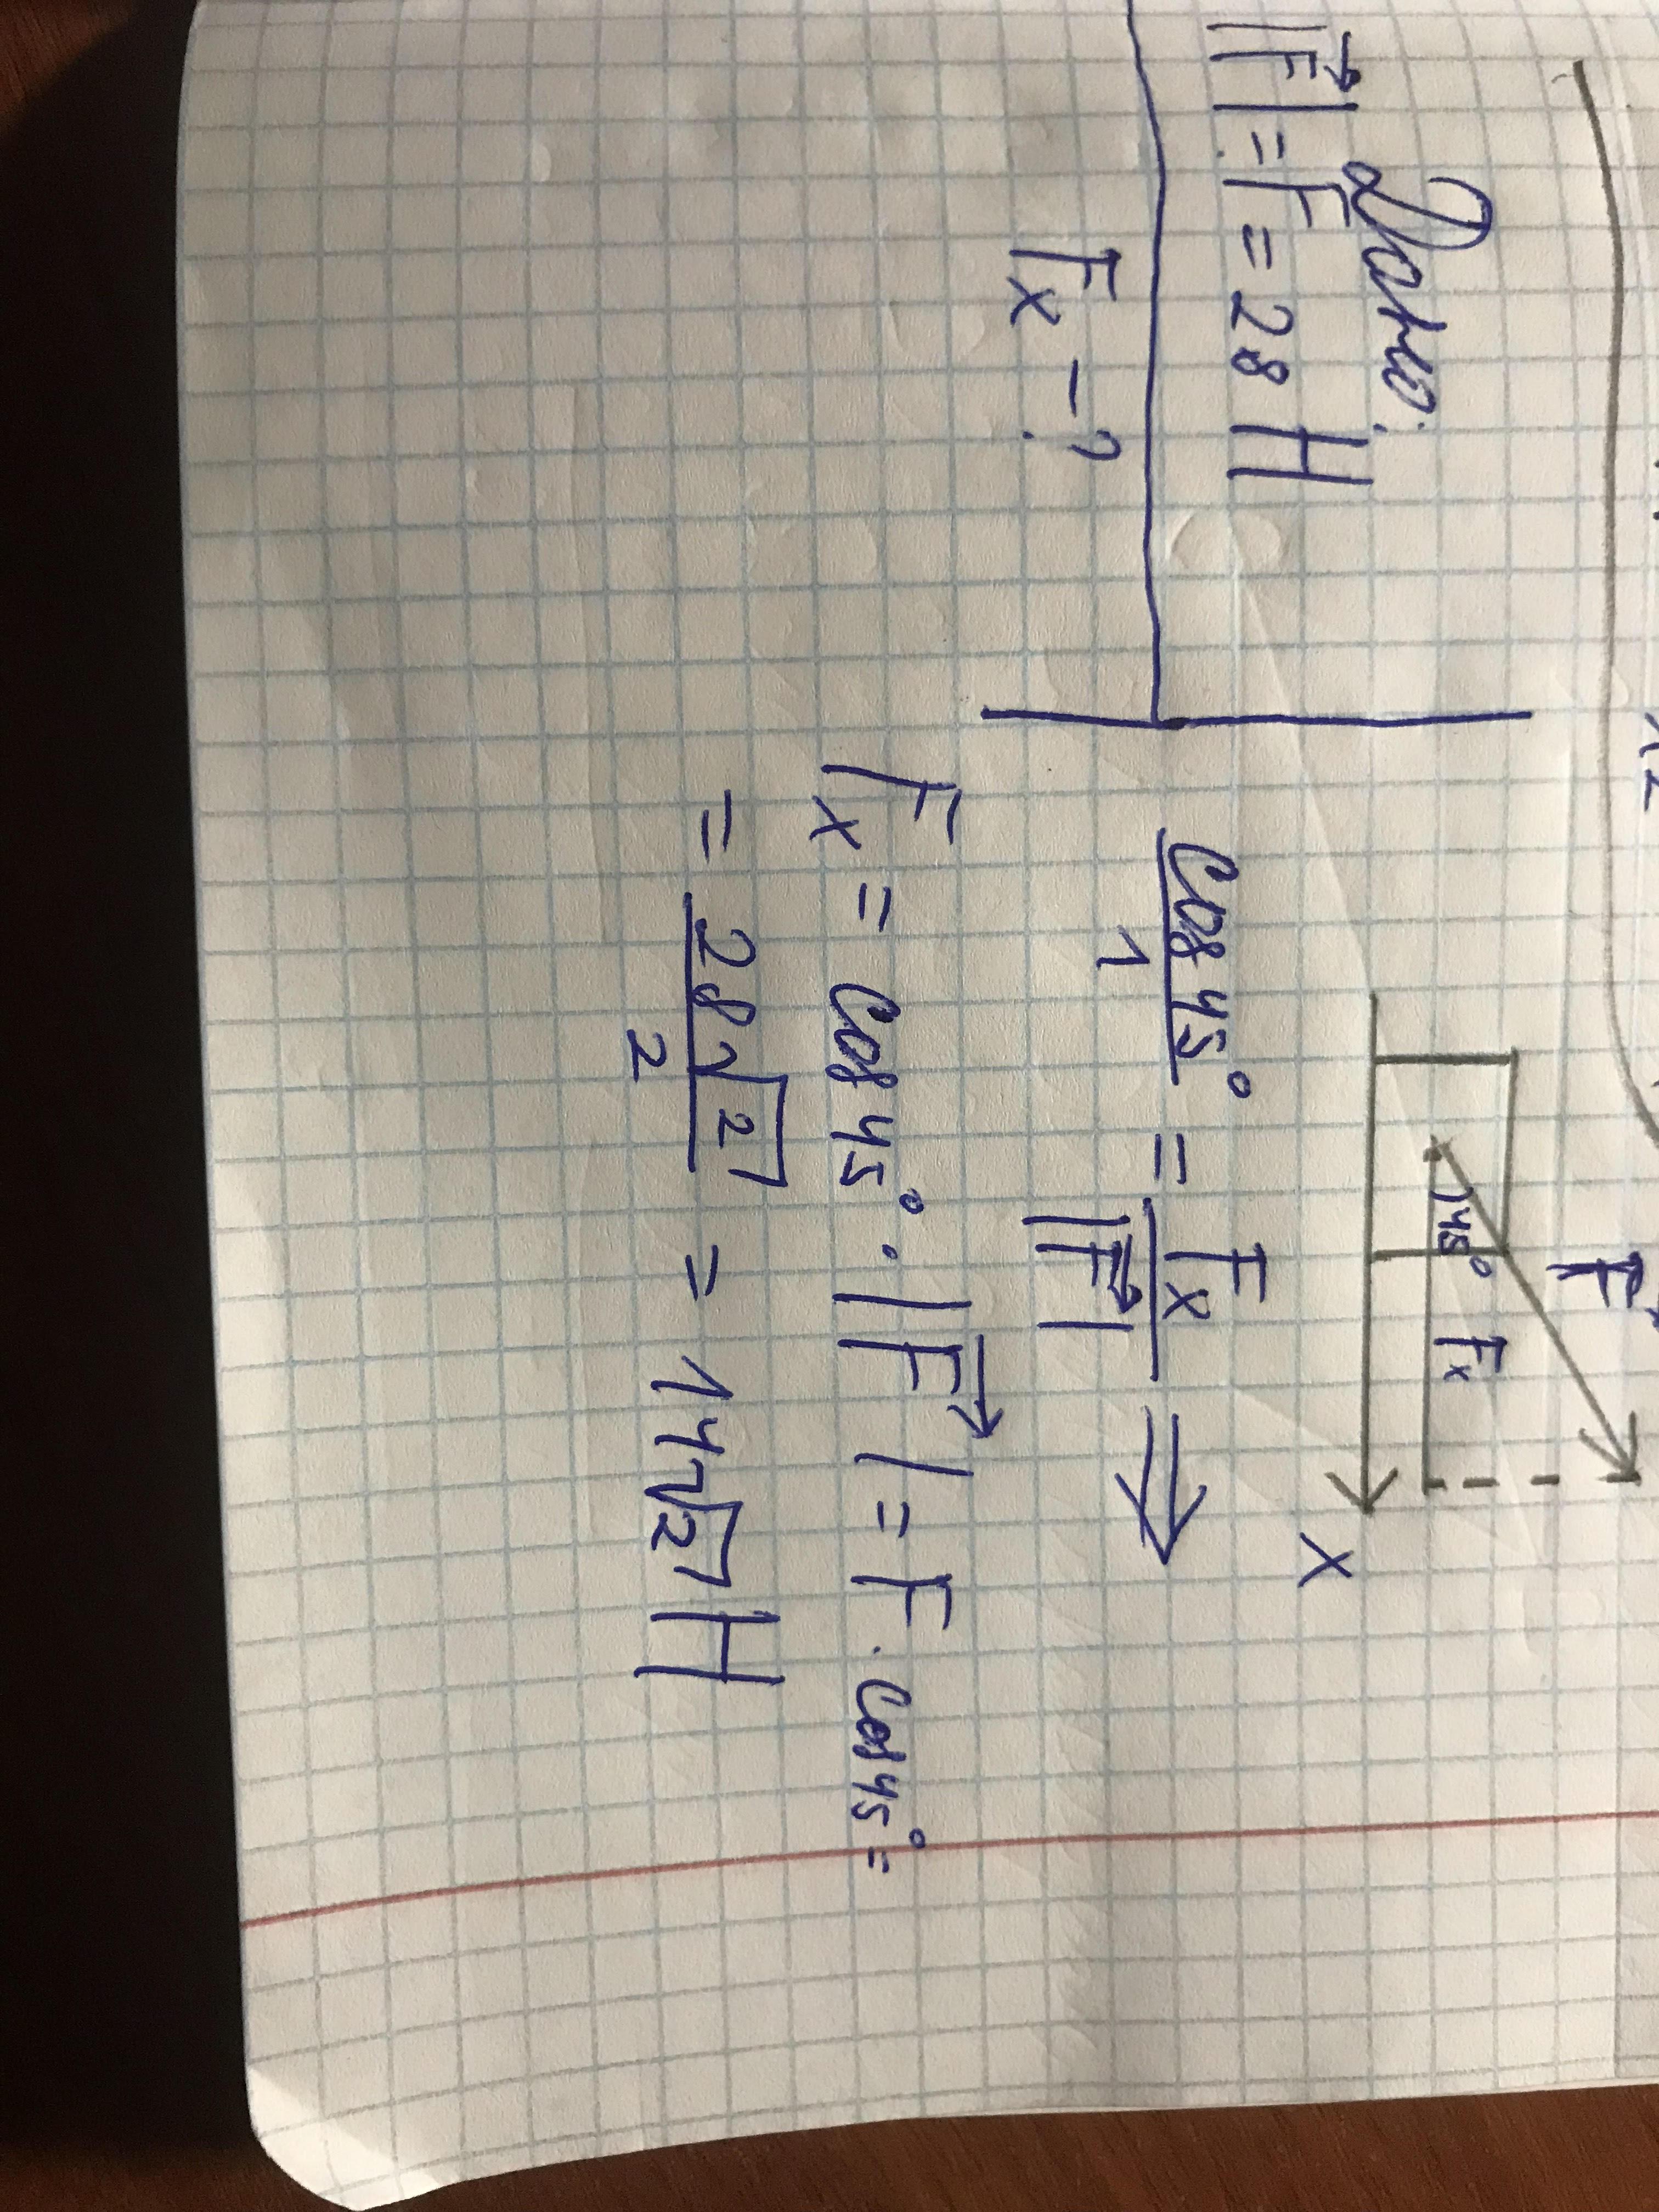 Дано:
|F⃗| = F = 28 Н
Fx - ?
F⃗
45°
Fx
X
cos 45° / 1 = Fx / |F⃗| ⇒
Fx = cos 45° · |F⃗| = F · cos 45° =
= 28√2 / 2 = 14√2 Н